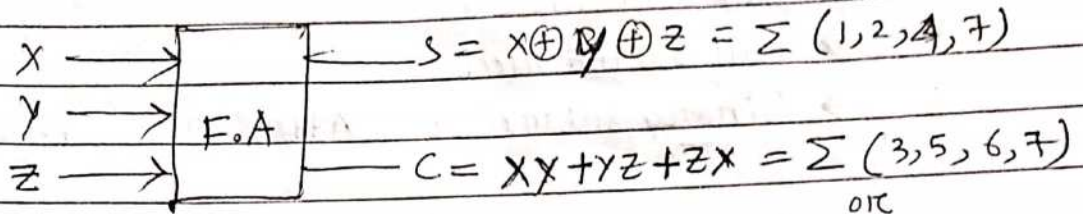 X
Y
Z
F.A
S = X⊕Y⊕Z = Σ (1,2,4,7)
C = XY+YZ+ZX = Σ (3,5,6,7)
or